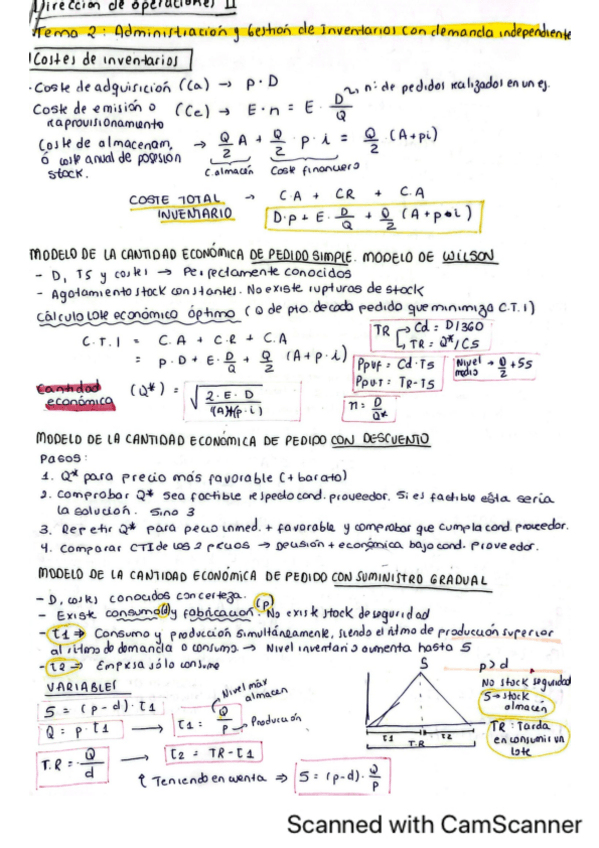 Dirección de operaciones II
Tema 2: Administración y Gestión de Inventarios con demanda independiente
Costes de inventarios
· Coste de adquisición (Ca) → P · D
Coste de emisión o reaprovisionamiento (Ce) → E · n = E · D/Q
n: de pedidos realizados en un ej.
Coste de almacenam, ó coste anual de posesión stock. → Q/2 A + Q/2 · p · i = Q/2 · (A+pi)
C. almacén Coste financiero
COSTE TOTAL INVENTARIO → C.A + CR + C.A
D·p + E · D/Q + Q/2 (A+p·i)
MODELO DE LA CANTIDAD ECONÓMICA DE PEDIDO SIMPLE. MODELO DE WILSON
- D, TS y costes → Perfectamente conocidos
- Agotamiento stock constantes. No existe rupturas de stock
Cálculo lote económico óptimo (Q de pto. de cada pedido que minimiza C.T.I)
C.T.I = C.A + C.R + C.A
= p · D + E · D/Q + Q/2 (A + p · i)
TR → Cd = D/360
→ TR = Q*/CS
Ppuf = Cd · TS
Ppu-T = TR-TS
Nivel medio → Q/2 + SS
n = D/Q*
Cantidad económica (Q*) = √ 2 · E · D / (A)+(p · i)
MODELO DE LA CANTIDAD ECONÓMICA DE PEDIDO CON DESCUENTO
Pasos:
1. Q* para precio más favorable (+ barato)
2. Comprobar Q* sea factible respecto cond. proveedor. Si es factible esta sería
la solución. Sino 3
3. Repetir Q* para precio inmed. + favorable y comprobar que cumpla cond proveedor.
4. Comparar CTI de los 2 precios → Decisión + económica bajo cond. Proveedor.
MODELO DE LA CANTIDAD ECONÓMICA DE PEDIDO CON SUMINISTRO GRADUAL
- D, costes conocidos con certeza.
- Existe consumo (d) y fabricación (p). No existe stock de seguridad
- t1 ⇒ Consumo y producción simultáneamente, siendo el ritmo de producción superior
al ritmo de demanda o consumo → Nivel inventario aumenta hasta S
- t2 ⇒ Empresa sólo consume
VARIABLES
S = (p - d) · t1
Nivel máx almacen
Q = p · t1 → t1 = Q/P → Producción
T.R = Q/d → t2 = TR - t1
↑ Teniendo en cuenta ⇒ S = (p-d) · Q/P
S
t1
t2
T.R
p > d
No stock seguridad
S → stock almacén
TR: Tarda en consumir un lote
Scanned with CamScanner